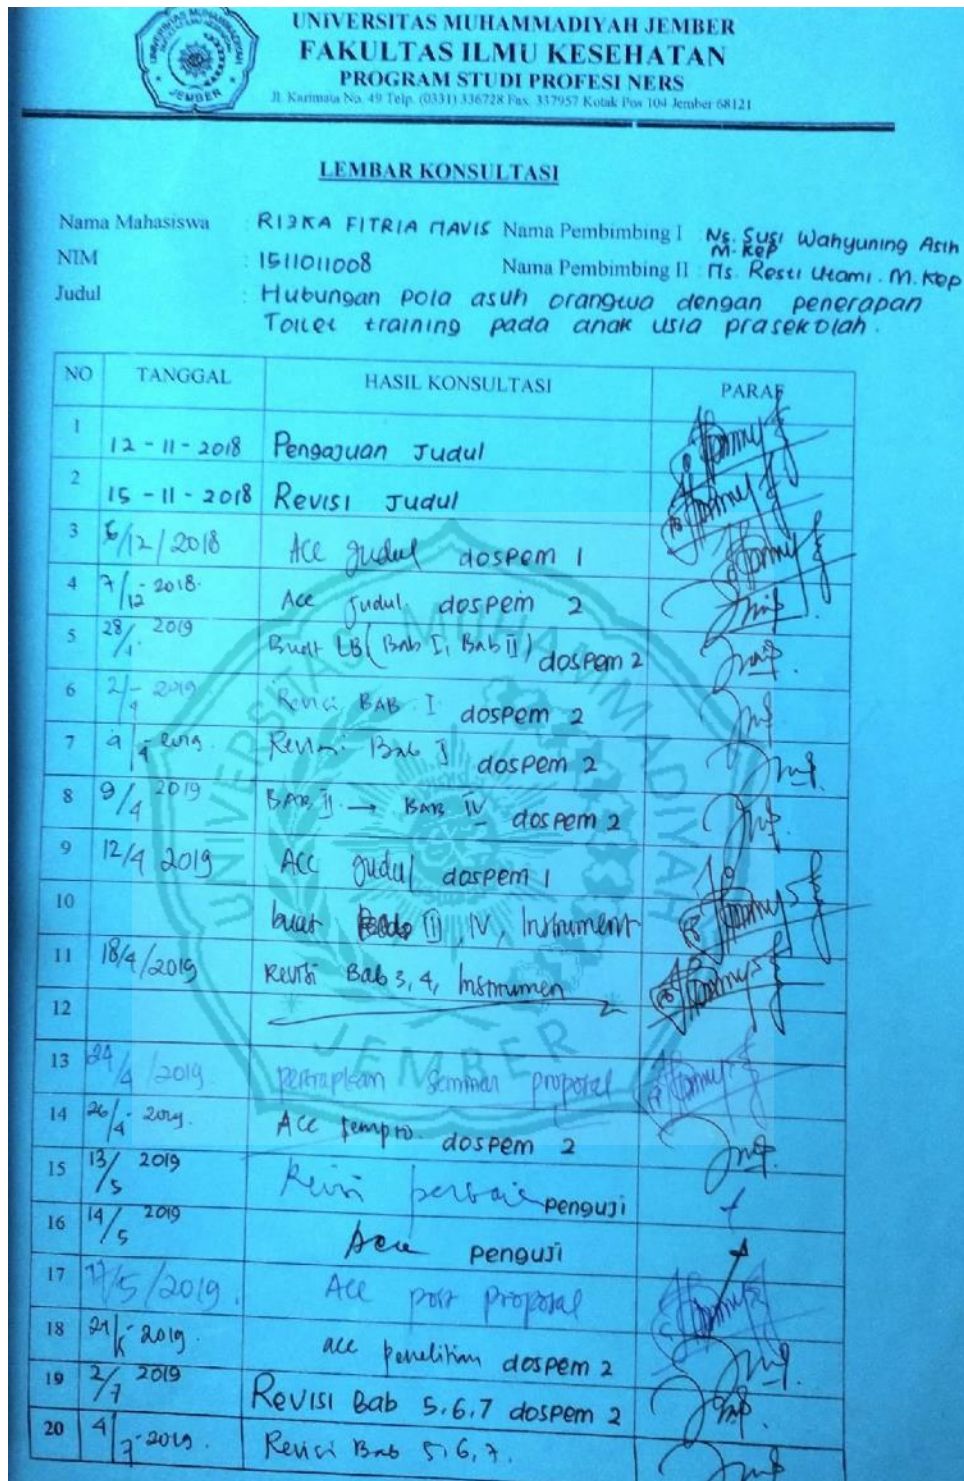 UNIVERSITAS MUHAMMADIYAH JEMBER
FAKULTAS ILMU KESEHATAN
PROGRAM STUDI PROFESI NERS
Jl. Karimata No. 49 Telp. (0331) 336728 Fax. 337957 Kotak Pos 104 Jember 68121
LEMBAR KONSULTASI
Nama Mahasiswa : RIZKA FITRIA MAVIS Nama Pembimbing I : Ns. Susi Wahyuning Asih M.Kep
NIM : 1511011008 Nama Pembimbing II : Ns. Resti Utami. M.Kep
Judul : Hubungan pola asuh orangtua dengan penerapan
Toilet training pada anak usia prasekolah.
NO TANGGAL HASIL KONSULTASI PARAF
1 12 - 11 - 2018 Pengajuan Judul
2 15 - 11 - 2018 Revisi Judul
3 6/12/2018 Acc Judul dospem 1
4 7/12-2018. Acc Judul dospem 2
5 28/1. 2019 Buat LB (Bab I, Bab II) dospem 2
6 2/4-2019 Revisi BAB I dospem 2
7 9/4-2019. Revisi Bab I dospem 2
8 9/4 2019 BAB II → BAB IV dospem 2
9 12/4 2019 Acc Judul dospem 1
10 buat III, IV, Instrument
11 18/4/2019 Revisi Bab 3, 4, Instrumen
12
13 24/4/2019 seminar proposal
14 26/4-2019. Acc sempro. dospem 2
15 13/5 2019 Revisi penguji
16 14/5 2019 Acc penguji
17 17/5/2019. Acc post proposal
18 2019. acc penelitian dospem 2
19 2/7 2019 Revisi Bab 5,6,7 dospem 2
20 4/7-2019. Revisi Bab 5,6,7.
UNIVERSITAS MUHAMMADIYAH
JEMBER